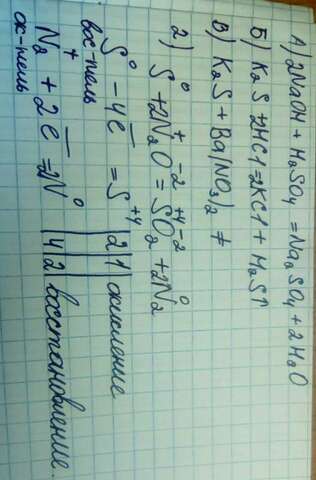 А) 2NaOH + H₂SO₄ = Na₂SO₄ + 2H₂O
Б) K₂S + 2HCl = 2KCl + H₂S↑
В) K₂S + Ba(NO₃)₂ ≠
2) S⁰ + 2N₂⁺O = S⁺⁴O₂⁻² + 2N₂⁰
S⁰ - 4e̅ = S⁺⁴ | 2 | 1 | окисление
вос-тель
N₂⁺ + 2e̅ = 2N⁰ | 4 | 2 | восстановление.
ок-тель